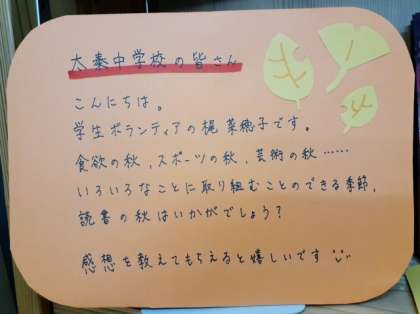 太秦中学校の皆さん
こんにちは。
学生ボランティアの梶 菜穂子です。
食欲の秋、スポーツの秋、芸術の秋……
いろいろなことに取り組むことのできる季節、
読書の秋はいかがでしょう？
感想を教えてもらえると嬉しいです